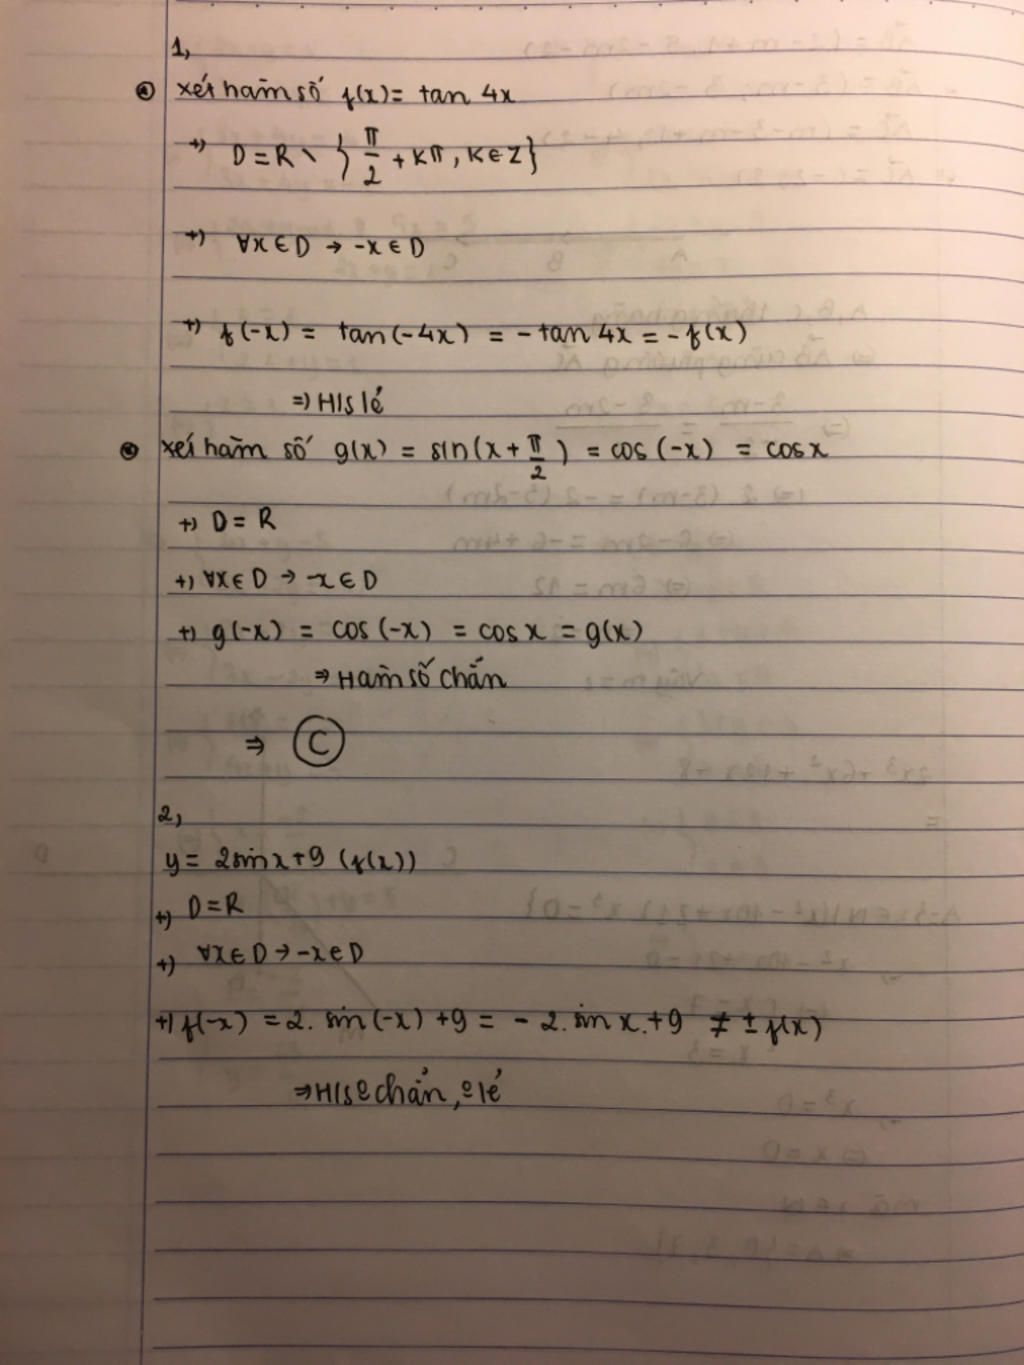 1,
xét hàm số f(x) = tan 4x
+) D = R \ { π/2 + Kπ, K ∈ Z }
+) ∀x ∈ D → -x ∈ D
+) f(-x) = tan(-4x) = - tan 4x = - f(x)
⇒ H/s lẻ
xét hàm số g(x) = sin(x + π/2) = cos(-x) = cos x
+) D = R
+) ∀x ∈ D → -x ∈ D
+) g(-x) = cos(-x) = cos x = g(x)
⇒ Hàm số chẵn
⇒ C
2,
y = 2sin x + 9 (f(x))
+) D = R
+) ∀x ∈ D → -x ∈ D
+) f(-x) = 2. sin(-x) + 9 = - 2. sin x. + 9 ≠ ± f(x)
⇒ H/s o chẵn, o lẻ